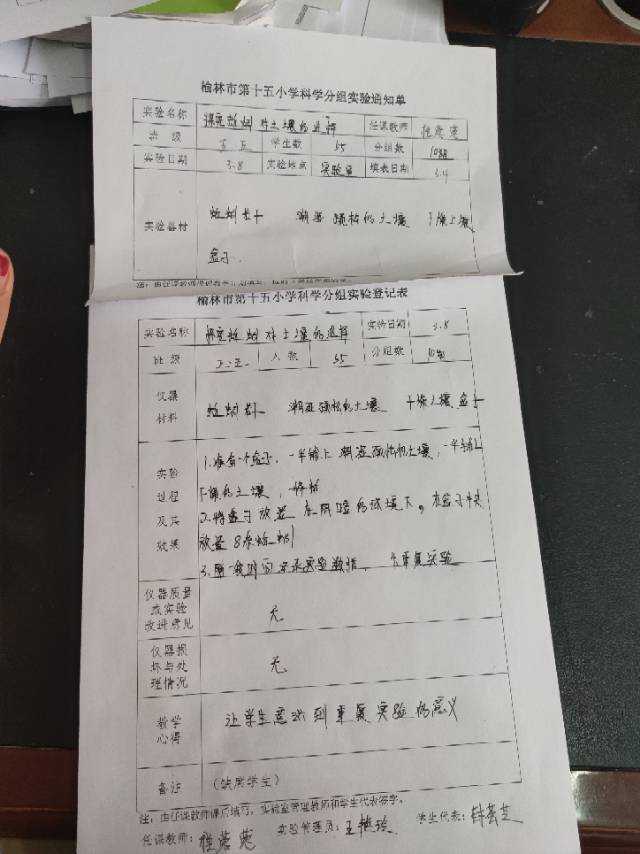 榆林市第十五小学科学分组实验通知单
实验名称 探究蚯蚓对土壤的选择 任课教师
班级 五.五 学生数 55 分组数 10组
实验日期 3.8 实验地点 实验室 填表日期 3.4
实验器材 蚯蚓若干 潮湿疏松的土壤 干燥土壤
盒子.
榆林市第十五小学科学分组实验登记表
实验名称 探究蚯蚓对土壤的选择 实验日期 3.8
班级 五.五 人数 55 分组数 10组
仪器材料 蚯蚓若干 潮湿疏松的土壤 干燥土壤 盒子
实验过程及其效果
1.准备一个盒子,一半铺上潮湿疏松的土壤,一半铺上
干燥的土壤,
2.将盒子放置在阴暗的环境下。在盒子中央
放置8条蚯蚓
3.隔一段时间记录实验数据,
仪器质量或实验改进意见 无
仪器损坏与处理情况 无
教学心得 让学生意识到重复实验的意义
备注 (缺席学生)
注:由任课教师课后填写,实验室管理教师和学生代表签字。
任课教师: 实验管理员: 学生代表: